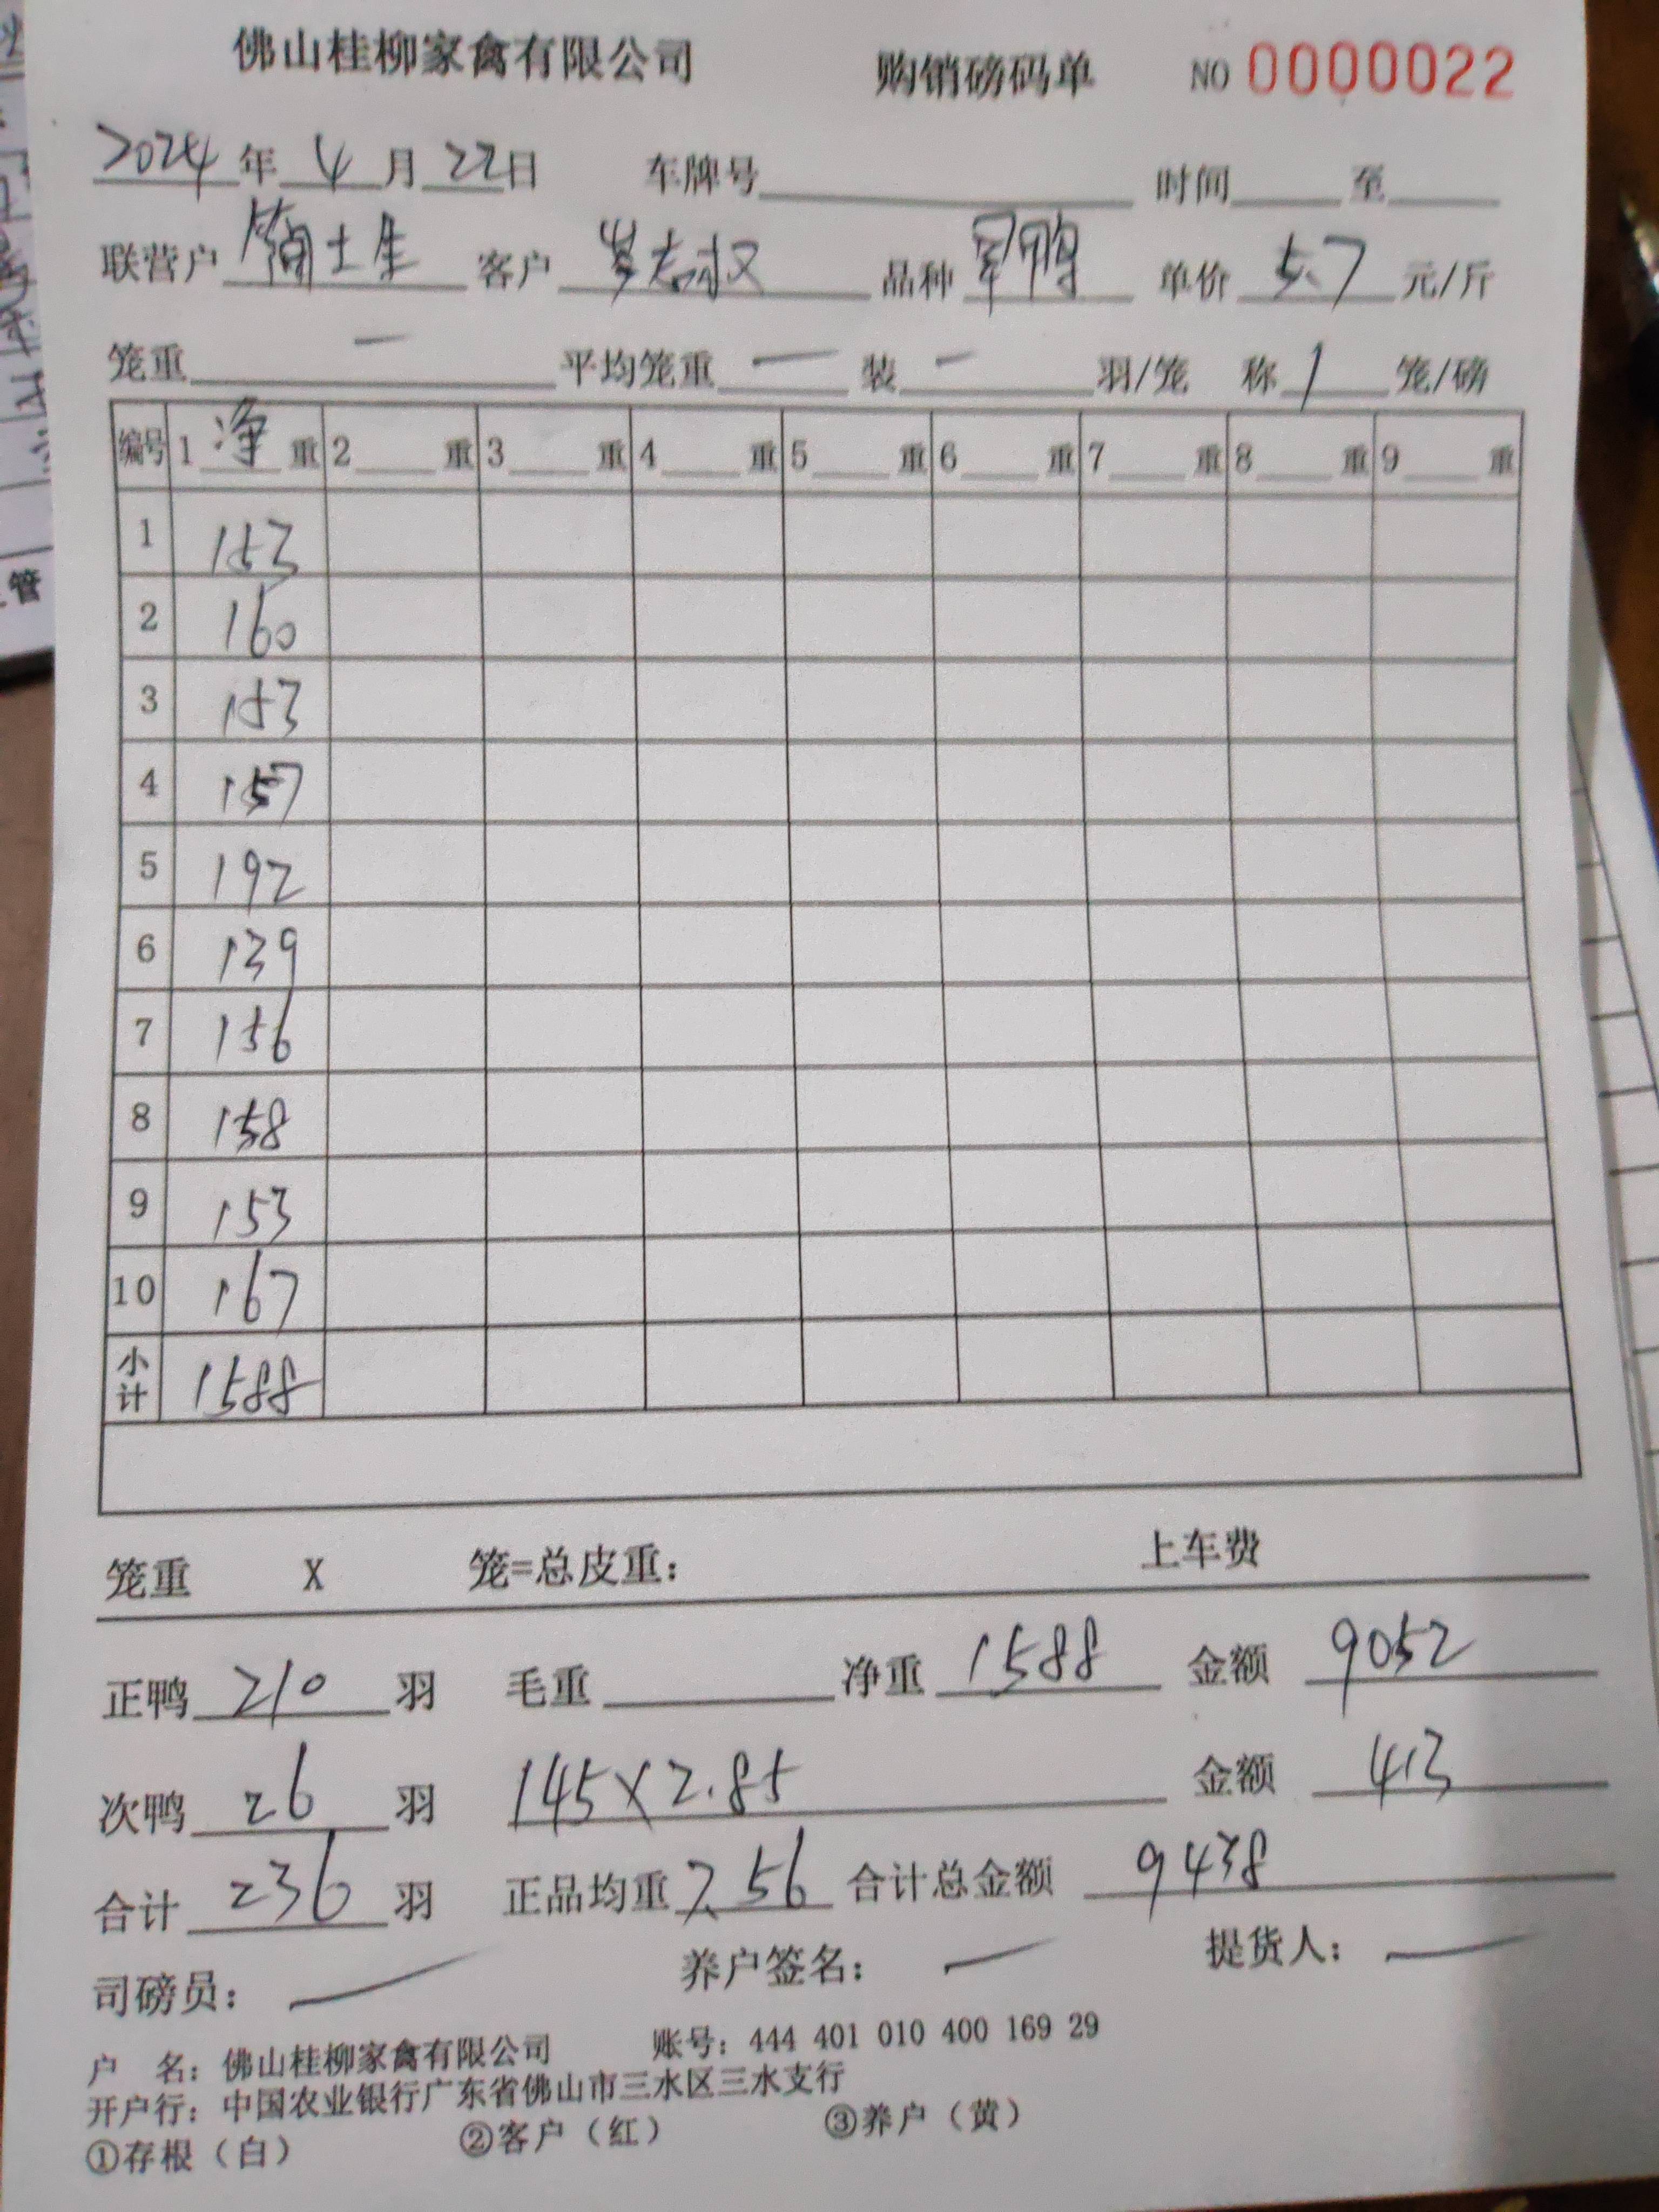 佛山桂柳家禽有限公司 购销磅码单 NO 0000022
2024年 4 月 22日 车牌号 时间 至
联营户 简土生 客户 岑志权 品种 军鸭 单价 5.7 元/斤
笼重 一 平均笼重 一 装 一 羽/笼 称 1 笼/磅
编号 1 净 重 2 重 3 重 4 重 5 重 6 重 7 重 8 重 9 重
1 153
2 160
3 153
4 157
5 192
6 139
7 156
8 158
9 153
10 167
小计 1588
笼重 X 笼=总皮重: 上车费
正鸭 210 羽 毛重 净重 1588 金额 9052
次鸭 26 羽 145×2.85 金额 413
合计 236 羽 正品均重 7.56 合计总金额 9438
司磅员: 养户签名: 提货人:
户 名: 佛山桂柳家禽有限公司 账号: 444 401 010 400 169 29
开户行: 中国农业银行广东省佛山市三水区三水支行
①存根（白） ②客户（红） ③养户（黄）
管